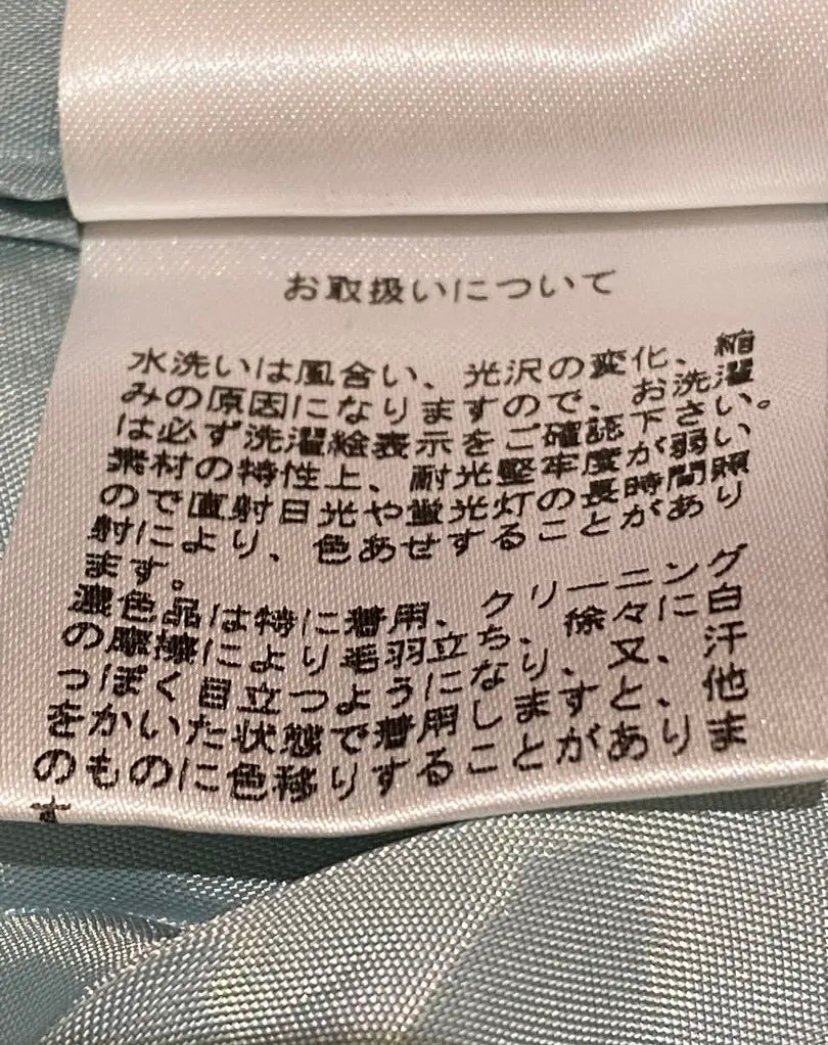 お取扱いについて
水洗いは風合い、光沢の変化、縮
みの原因になりますので、お洗濯
は必ず洗濯絵表示をご確認下さい。
素材の特性上、耐光堅牢度が弱い
ので直射日光や蛍光灯の長時間照
射により、色あせすることがあり
ます。
濃色品は特に着用、クリーニング
の摩擦により毛羽立ち、徐々に白
っぽく目立つようになり、又、汗
をかいた状態で着用しますと、他
のものに色移りすることがありま
す